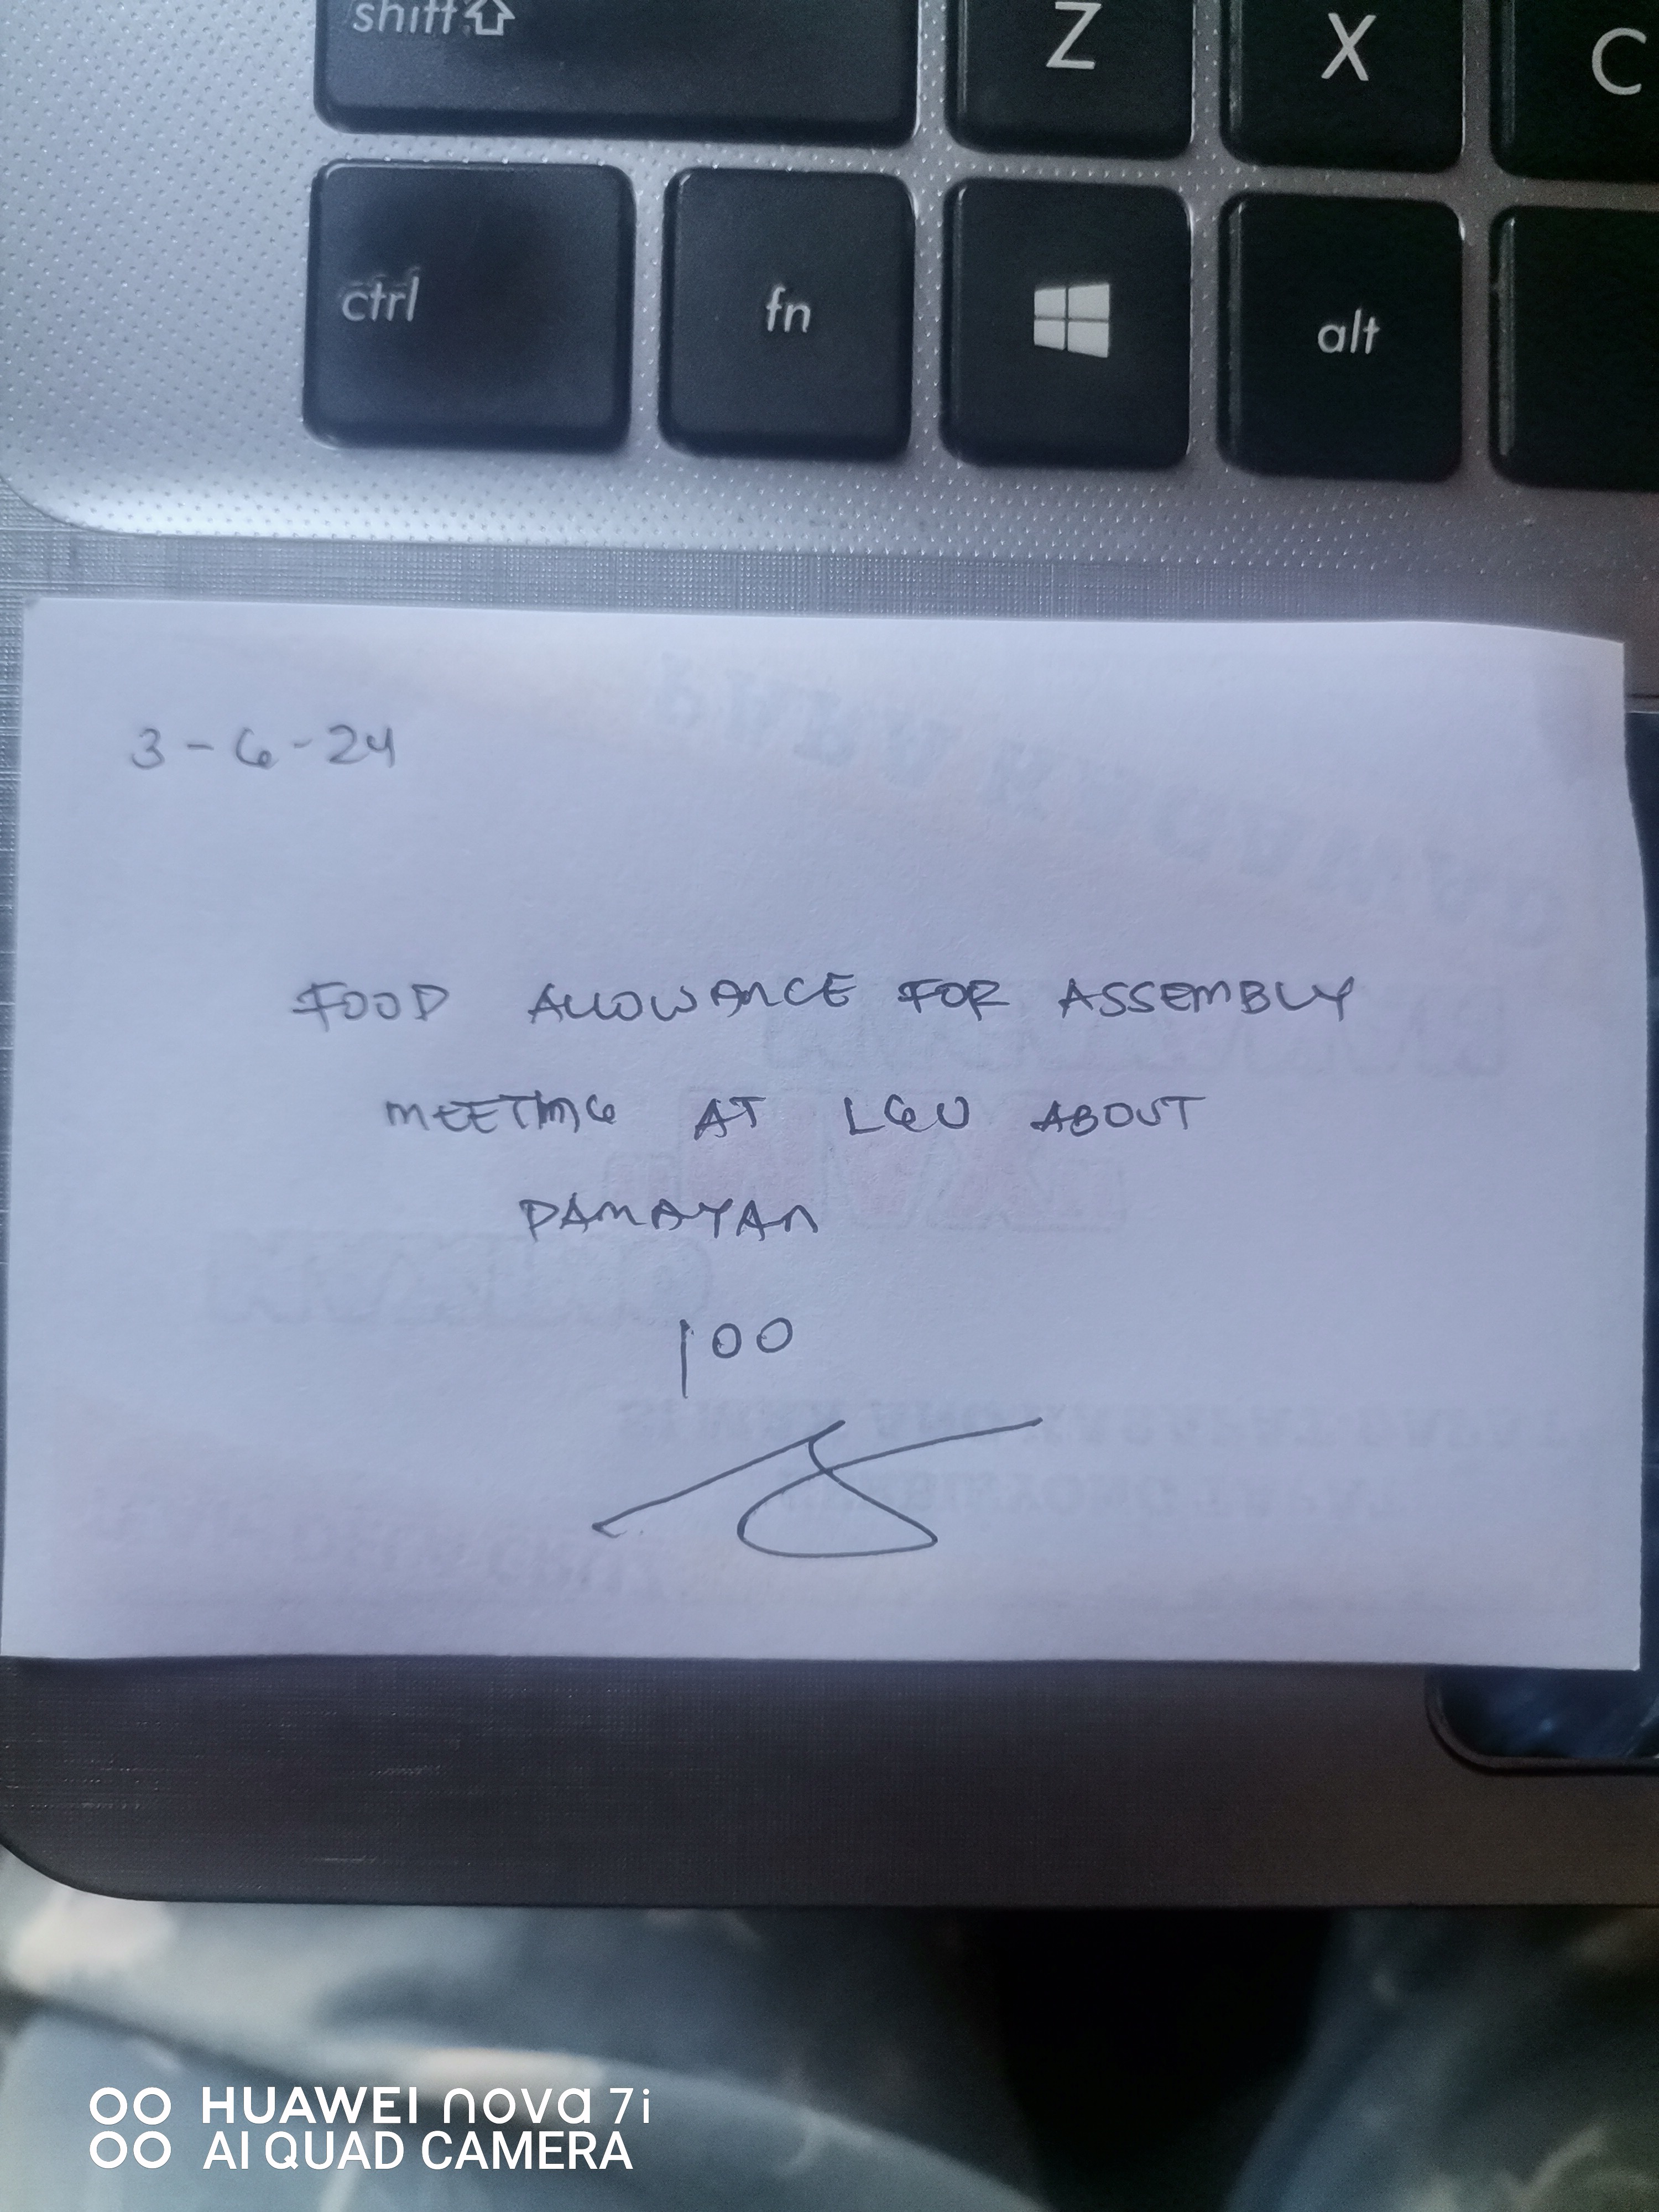 shift
Z
X
C
ctrl
fn
alt
3-6-24
FOOD ALLOWANCE FOR ASSEMBLY
MEETING AT LGU ABOUT
DAMAYAN
100
HUAWEI nova 7i
AI QUAD CAMERA